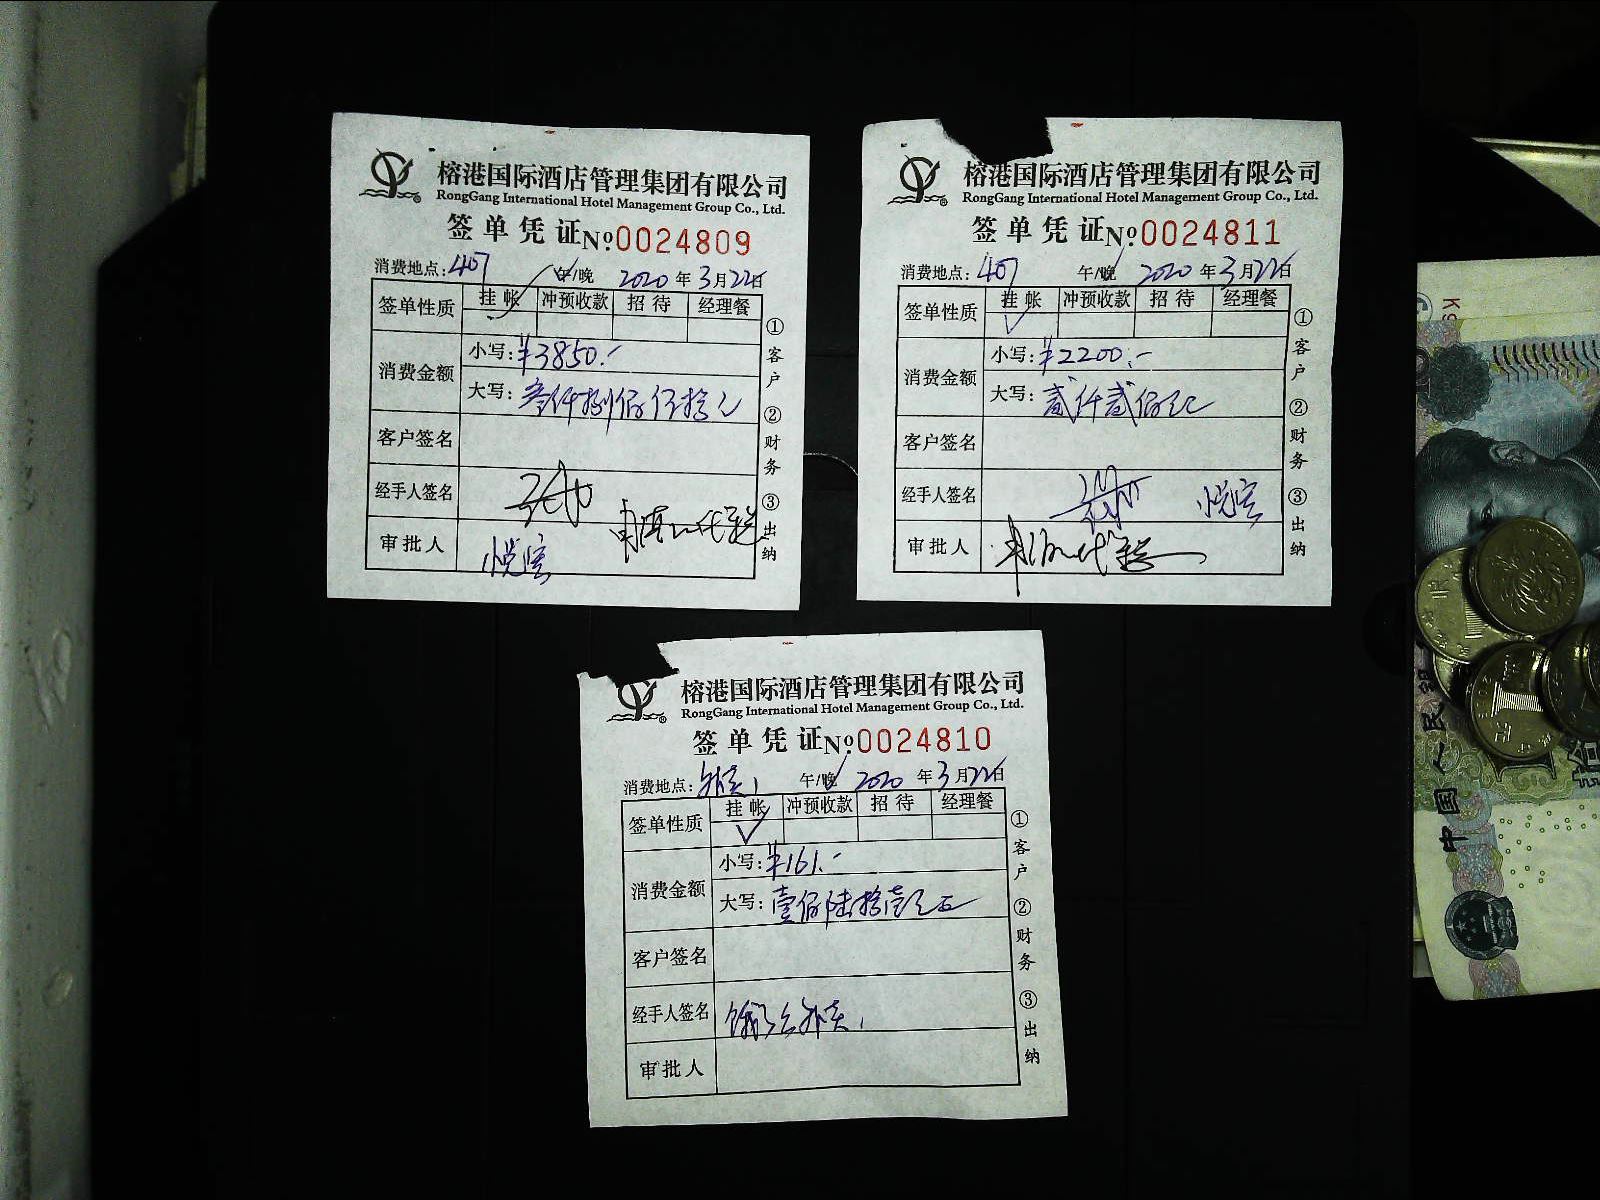 榕港国际酒店管理集团有限公司
RongGang International Hotel Management Group Co., Ltd.
签单凭证 No 0024809
消费地点: 407 午/晚 2020 年 3 月 22 日
签单性质 挂帐 冲预收款 招待 经理餐
消费金额
小写: ¥3850.-
大写: 叁仟捌佰伍拾元
客户签名
经手人签名
审批人
①客户 ②财务 ③出纳
榕港国际酒店管理集团有限公司
RongGang International Hotel Management Group Co., Ltd.
签单凭证 No 0024811
消费地点: 407 午/晚 2020 年 3 月 22 日
签单性质 挂帐 冲预收款 招待 经理餐
消费金额
小写: ¥2200.-
大写: 贰仟贰佰元
客户签名
经手人签名
审批人
①客户 ②财务 ③出纳
榕港国际酒店管理集团有限公司
RongGang International Hotel Management Group Co., Ltd.
签单凭证 No 0024810
消费地点: 外卖1 午/晚 2020 年 3 月 22 日
签单性质 挂帐 冲预收款 招待 经理餐
消费金额
小写: ¥161.-
大写: 壹佰陆拾壹元正
客户签名
经手人签名 饿了么外卖1
审批人
①客户 ②财务 ③出纳
中国人民